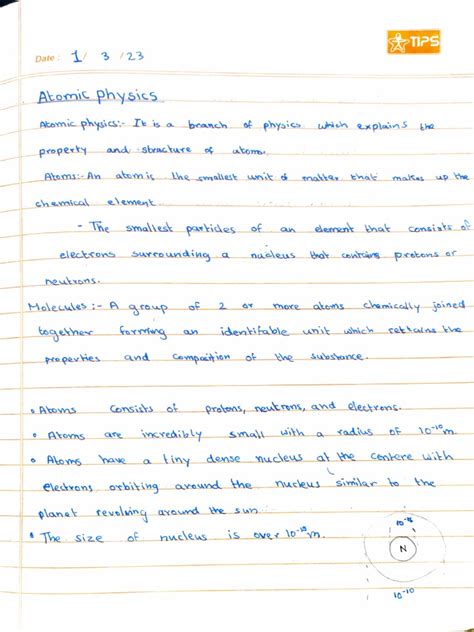 TIPS
Date: 1/ 3 /23
Atomic physics
Atomic physics:- It is a branch of physics which explains the
property and stracture of atom.
Atoms:- An atom is the smallest unit of matter that makes up the
chemical element.
- The smallest particles of an element that consists of
electrons surrounding a nucleus that contains protons or
neutrons.
Molecules:- A group of 2 or more atoms chemically joined
together forming an identifable unit which rettains the
properties and compaition of the substance.
• Atoms consists of protons, neutrons, and electrons.
• Atoms are incredibly small with a radius of 10⁻¹⁰m.
• Atoms have a tiny dense nucleus at the centere with
electrons orbiting around the nucleus similar to the
planet revolving around the sun
• The size of nucleus is over 10⁻¹⁵m.
10⁻¹⁵
N
10⁻¹⁰